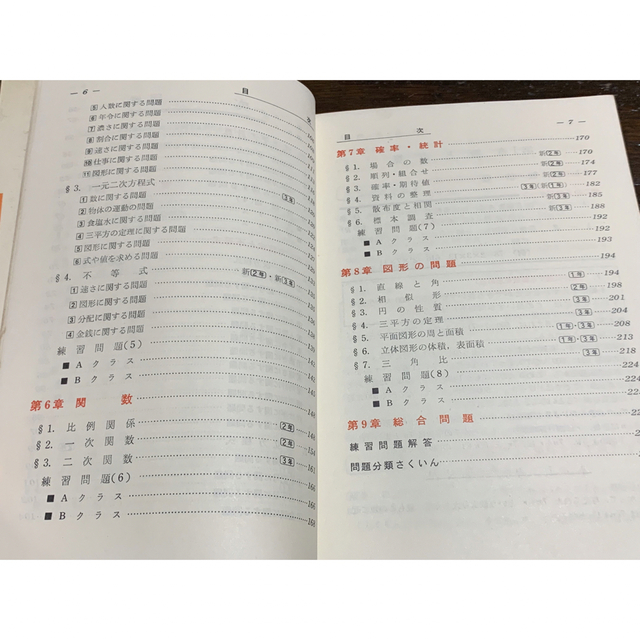 — 6 —
目 次
5 人数に関する問題
6 年令に関する問題
7 濃さに関する問題
8 割合に関する問題
9 速さに関する問題
10 仕事に関する問題
11 図形に関する問題
§3. 一元二次方程式 3年
1 数に関する問題
2 物体の運動の問題
3 食塩水に関する問題
4 三平方の定理に関する問題
5 図形に関する問題
6 式や値を求める問題
§4. 不等式 新2年・新3年
1 速さに関する問題
2 図形に関する問題
3 分配に関する問題
4 金銭に関する問題
練習問題(5)
■ Aクラス
■ Bクラス
第6章 関数
§1. 比例関係 2年
§2. 一次関数 2年
§3. 二次関数 3年 161
練習問題(6)
■ Aクラス
■ Bクラス
— 7 —
目 次
第7章 確率・統計 170
§1. 場合の数 新2年 170
§2. 順列・組合せ 新2年 174
§3. 確率・期待値 3年 新1年 177
§4. 資料の整理 新2年 182
§5. 散布度と相関 新3年 185
§6. 標本調査 新3年 188
練習問題(7) 192
■ Aクラス 192
■ Bクラス 193
第8章 図形の問題 194
§1. 直線と角 1年 194
§2. 相似形 2年 198
§3. 円の性質 3年 201
§4. 三平方の定理 3年 204
§5. 平面図形の周と面積 1年・3年 208
§6. 立体図形の体積,表面積 1年・3年 213
§7. 三角比 3年 218
練習問題(8) 224
■ Aクラス 224
■ Bクラス
第9章 総合問題
練習問題解答
問題分類さくいん